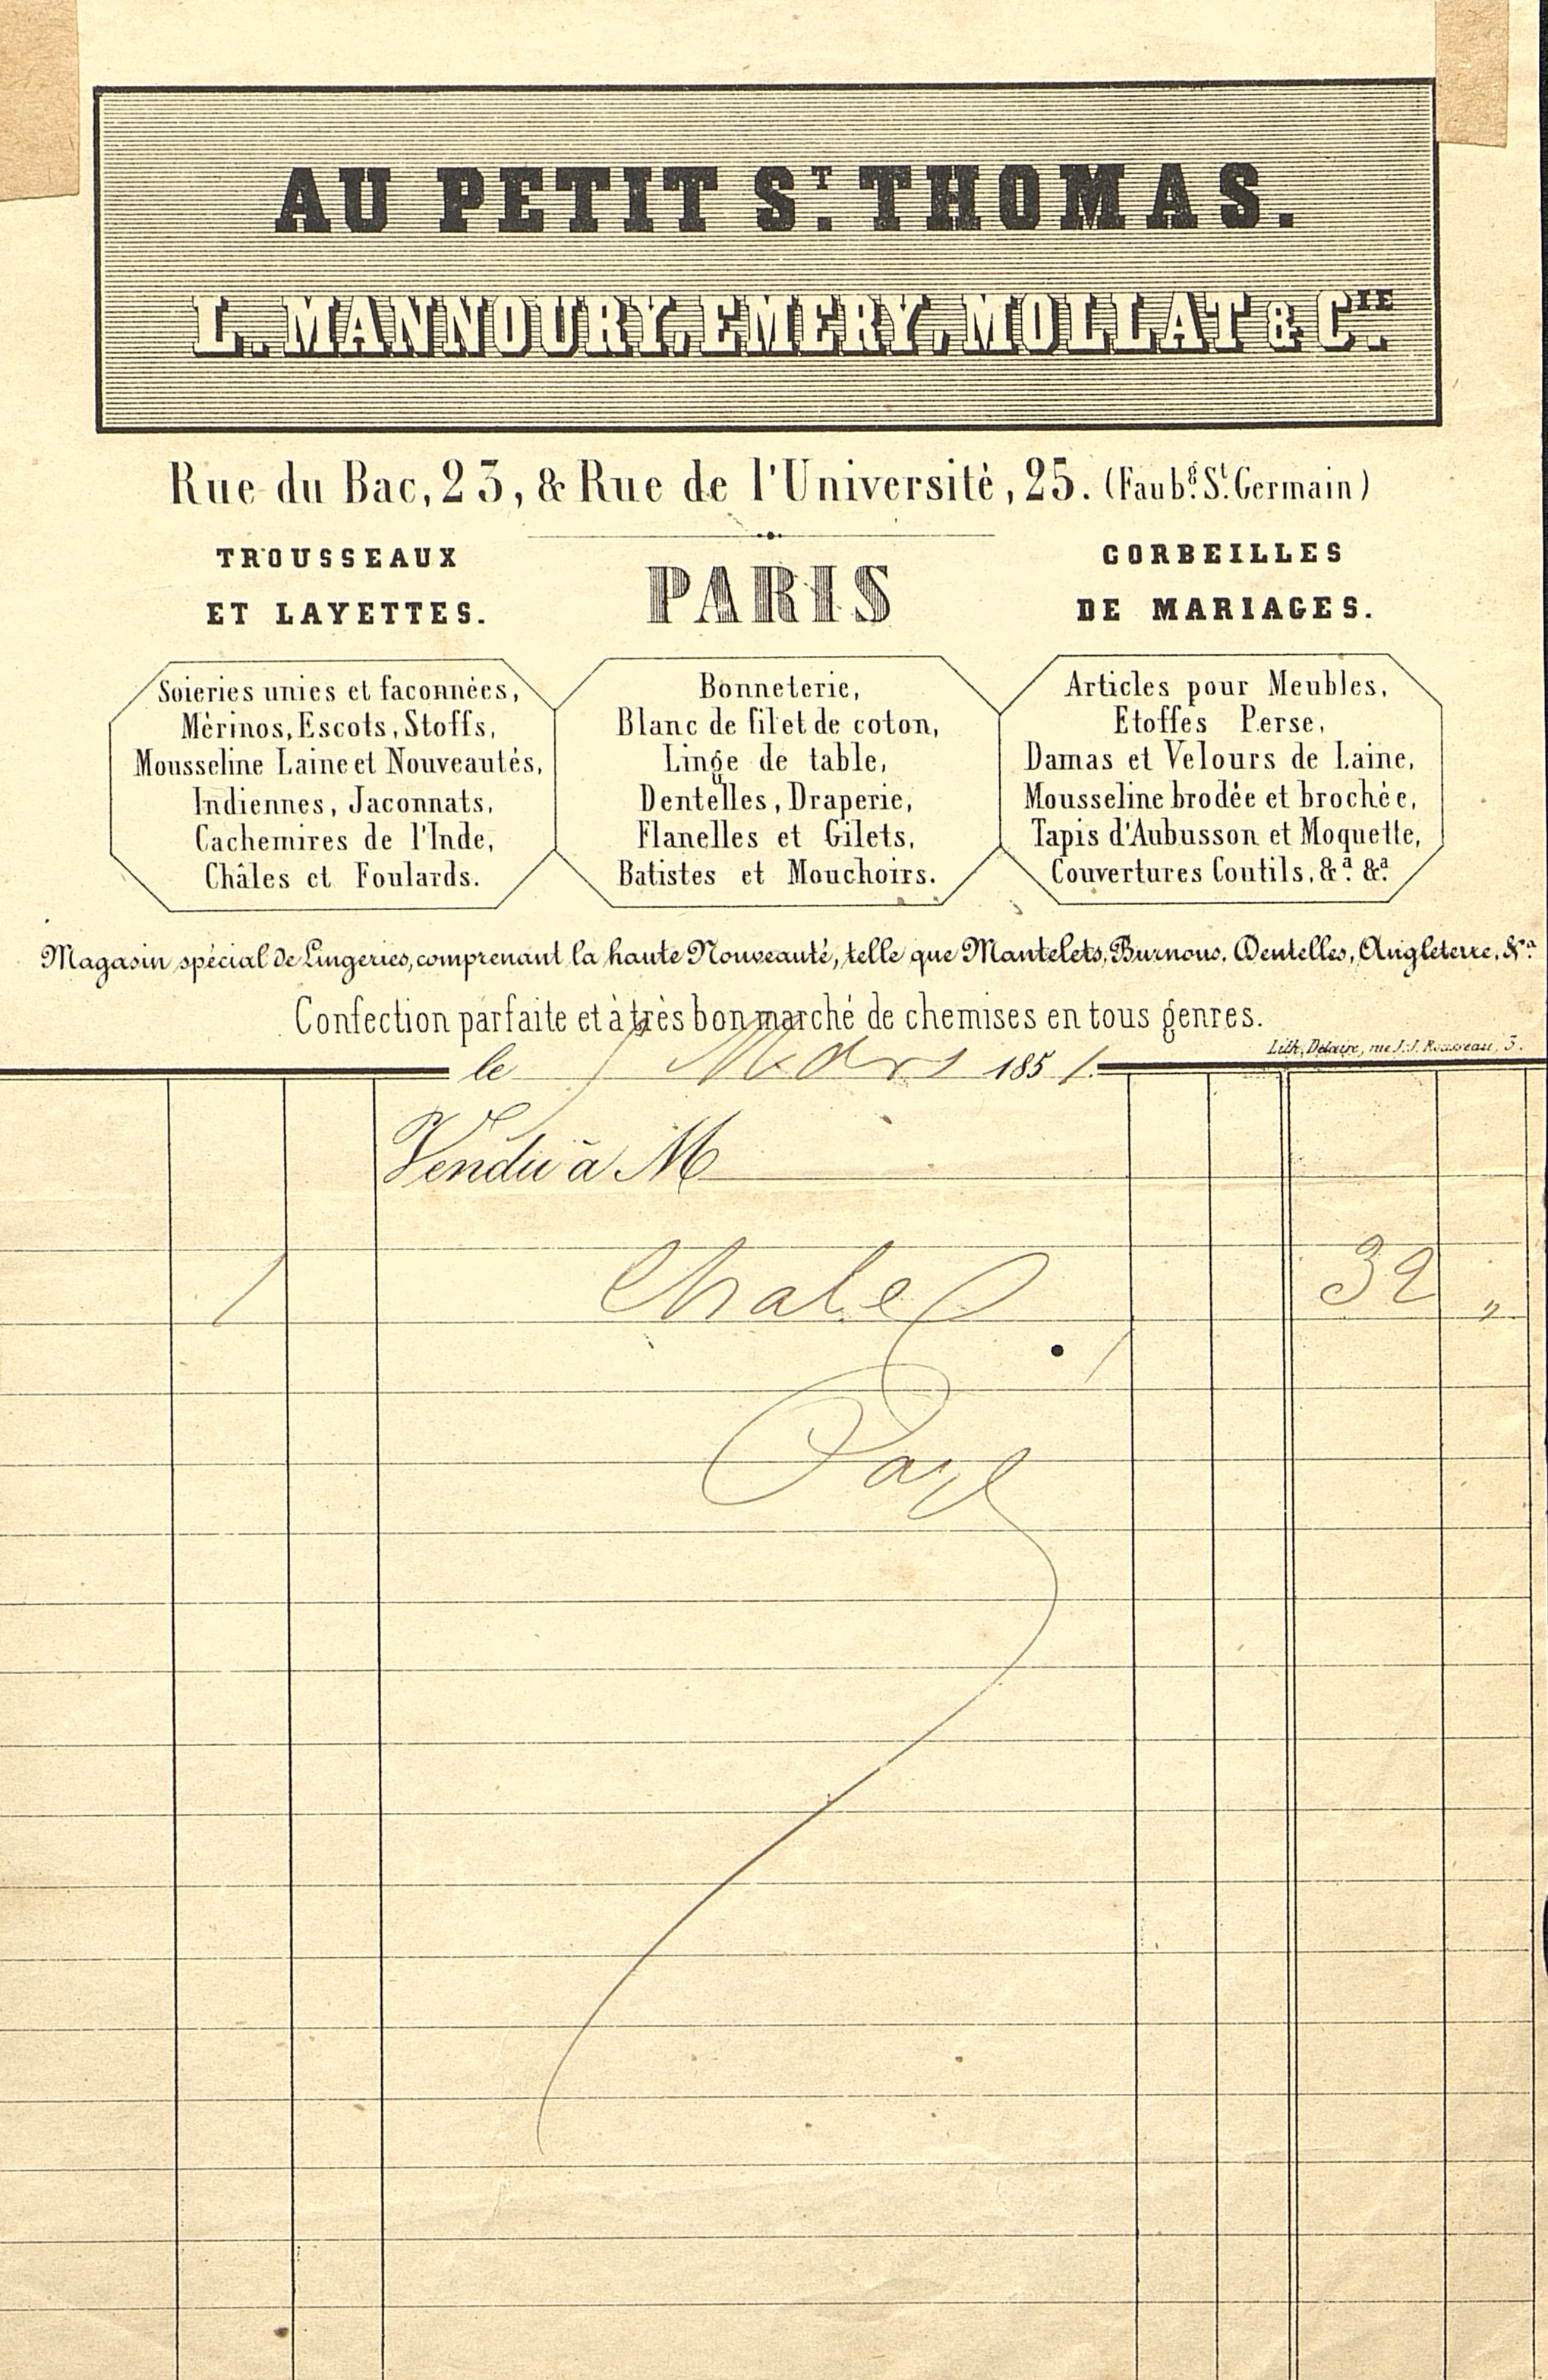 AU PETIT ST. THOMAS.
L. MANNOURY, EMERY, MOLLAT & CIE.
Rue du Bac, 23, & Rue de l'Université, 25. (Faubg. St. Germain)
TROUSSEAUX
ET LAYETTES.
PARIS
CORBEILLES
DE MARIAGES.
Soieries unies et faconnées,
Mérinos, Escots, Stoffs,
Mousseline Laine et Nouveautés,
Indiennes, Jaconnats,
Cachemires de l'Inde,
Châles et Foulards.
Bonneterie,
Blanc de fil et de coton,
Linge de table,
Dentelles, Draperie,
Flanelles et Gilets,
Batistes et Mouchoirs.
Articles pour Meubles,
Etoffes Perse,
Damas et Velours de Laine,
Mousseline brodée et brochée,
Tapis d'Aubusson et Moquette,
Couvertures Coutils, &a. &a.
Magasin spécial de Lingeries, comprenant la haute Nouveauté, telle que Mantelets, Burnous, Dentelles, Angleterre, &a.
Confection parfaite et à très bon marché de chemises en tous genres.
Lith. Delaire, rue J.J. Rousseau, 3.
le Mars 1851.
Vendu à M
1 Chale 32 "
Payé